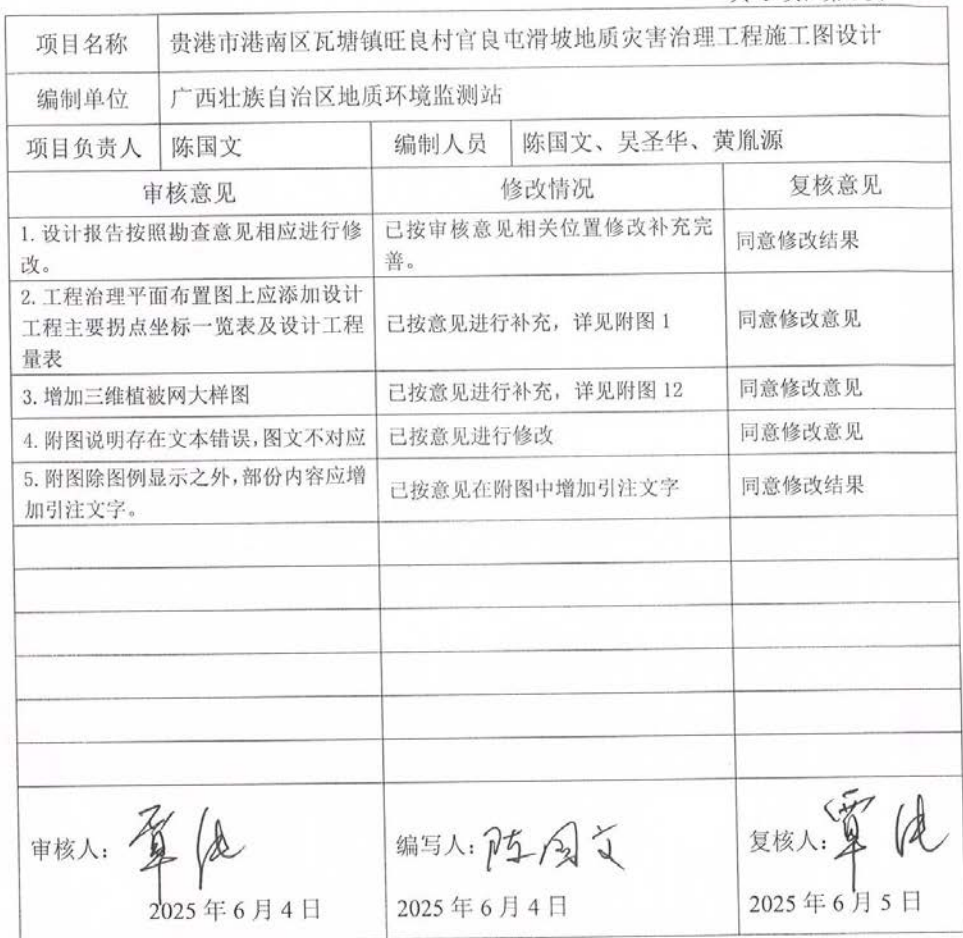 项目名称 贵港市港南区瓦塘镇旺良村官良屯滑坡地质灾害治理工程施工图设计
编制单位 广西壮族自治区地质环境监测站
项目负责人 陈国文 编制人员 陈国文、吴圣华、黄胤源
审核意见 修改情况 复核意见
1.设计报告按照勘查意见相应进行修
改。
已按审核意见相关位置修改补充完
善。
同意修改结果
2.工程治理平面布置图上应添加设计
工程主要拐点坐标一览表及设计工程
量表
已按意见进行补充，详见附图 1
同意修改意见
3.增加三维植被网大样图
已按意见进行补充，详见附图 12
同意修改意见
4.附图说明存在文本错误,图文不对应
已按意见进行修改
同意修改意见
5.附图除图例显示之外,部份内容应增
加引注文字。
已按意见在附图中增加引注文字
同意修改结果
审核人：覃
2025 年 6 月 4 日
编写人：陈国文
2025 年 6 月 4 日
复核人：覃
2025 年 6 月 5 日